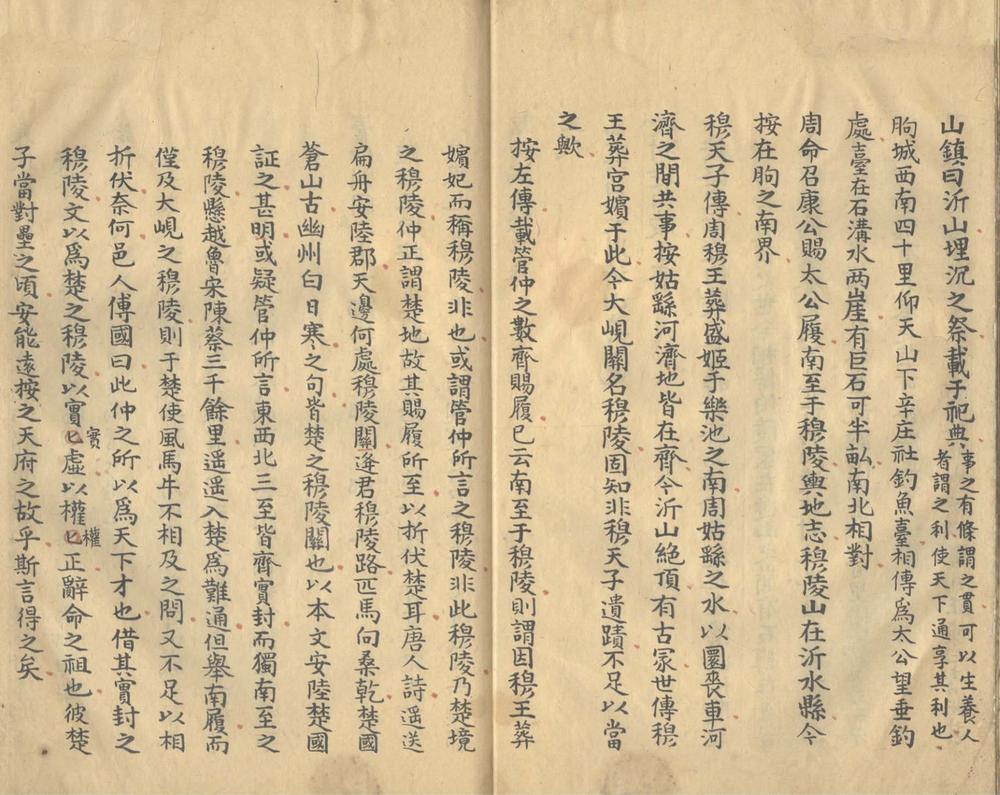 山鎮曰沂山埋沉之祭載于祀典事之有條謂之貫可以生養人者謂之利使天下通享其利也
朐城西南四十里仰天山下辛庄社釣魚臺相傳爲太公望垂釣
處臺在石溝水两崖有巨石可半畝南北相對
周命召康公賜太公履南至于穆陵輿地志穆陵山在沂水縣今
按在朐之南界
穆天子傳周穆王葬盛姬于樂池之南周姑繇之水以圜喪車河
濟之間共事按姑繇河濟地皆在齊今沂山絶頂有古冢世傳穆
王葬宮嬪于此今大峴關名穆陵固知非穆天子遺蹟不足以當
之歟
按左傳載管仲之數齊賜履已云南至于穆陵則謂因穆王葬
嬪妃而稱穆陵非也或謂管仲所言之穆陵非此穆陵乃楚境
之穆陵仲正謂楚地故其賜履所至以折伏楚耳唐人詩遥送
扁舟安陸郡天邊何處穆陵關逢君穆陵路匹馬向桑乾楚國
蒼山古幽州白日寒之句皆楚之穆陵關也以本文安陸楚國
証之甚明或疑管仲所言東西北三至皆齊實封而獨南至之
穆陵懸越魯宋陳蔡三千餘里遥遥入楚爲難通但舉南履而
僅及大峴之穆陵則于楚使風馬牛不相及之問又不足以相
折伏奈何邑人傅國曰此仲之所以爲天下才也借其實封之
穆陵文以爲楚之穆陵以實實匕虛以權權匕正辭命之祖也彼楚
子當對壘之頃安能遠按之天府之故乎斯言得之矣